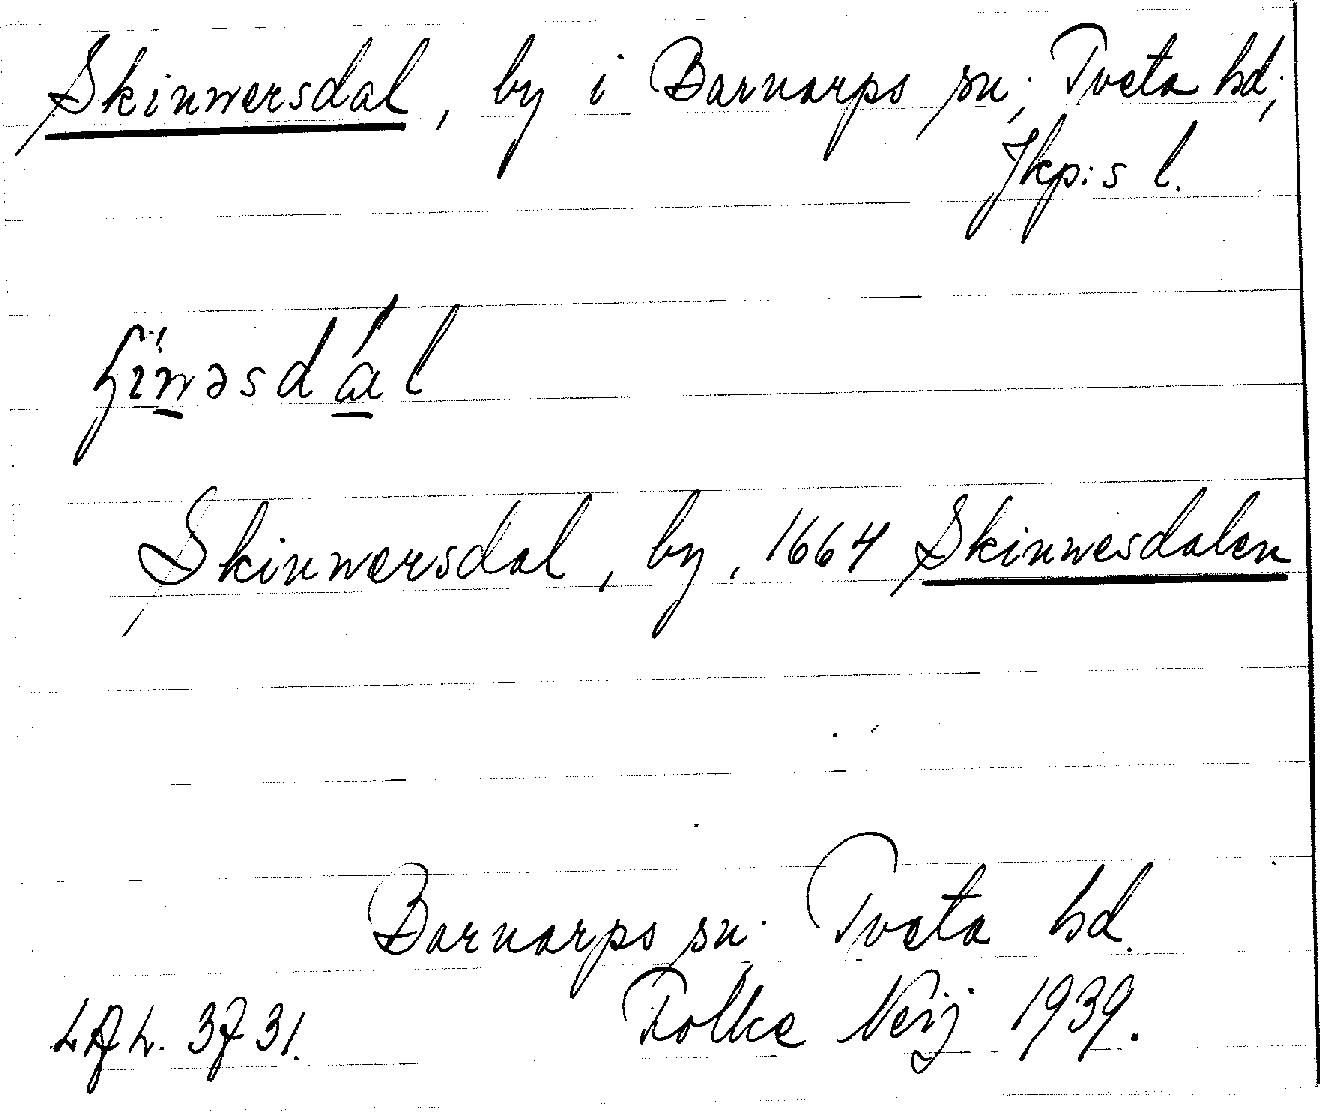 Skinnersdal, by i Barnarps sn; Tveta hd;
Jkp:s l.
Skinnersdal, by, 1664 Skinnesdalen
Barnarps sn. Tveta hd.
Folke Neij 1939.